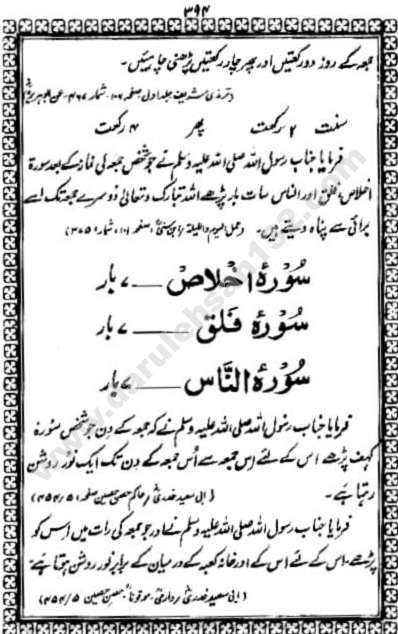 ۳۹۴
جمعہ کے روز دو رکعتیں اور پھر چار رکعتیں پڑھنی چاہئیں۔
سنت ۲ رکعت پھر ۴ رکعت
فرمایا جناب رسول اللہ صلی اللہ علیہ وسلم نے جو شخص جمعہ کی نماز کے بعد سورۃ
اخلاص، فلق اور الناس سات بار پڑھے اللہ تبارک وتعالیٰ دوسرے جمعہ تک اسے
برائی سے پناہ دیتے ہیں۔ (عمل الیوم واللیلۃ ابن سنی صفحہ ۱۰۱، شمار ۳۷۵)
سُوْرَۃُ اِخْلَاصْ — ۷ بار
سُوْرَۃُ فَلَقْ — ۷ بار
سُوْرَۃُ النَّاسْ — ۷ بار
فرمایا جناب رسول اللہ صلی اللہ علیہ وسلم نے کہ جمعہ کے دن جو شخص سورۃ
کہف پڑھے اس کے لئے اس جمعہ سے اُس جمعہ کے دن تک ایک نور روشن
رہتا ہے۔ (ابی سعید خدری / حاکم حصن حصین صفحہ ۴۵۴/۵)
فرمایا جناب رسول اللہ صلی اللہ علیہ وسلم نے اور جو جمعہ کی رات میں اس کو
پڑھے۔ اس کے لئے اس کے اور خانہ کعبہ کے درمیان کے برابر نور روشن ہوتا ہے۔
(ابی سعید خدری / دارمی، موقوفا حصن حصین ۴۵۴/۵)